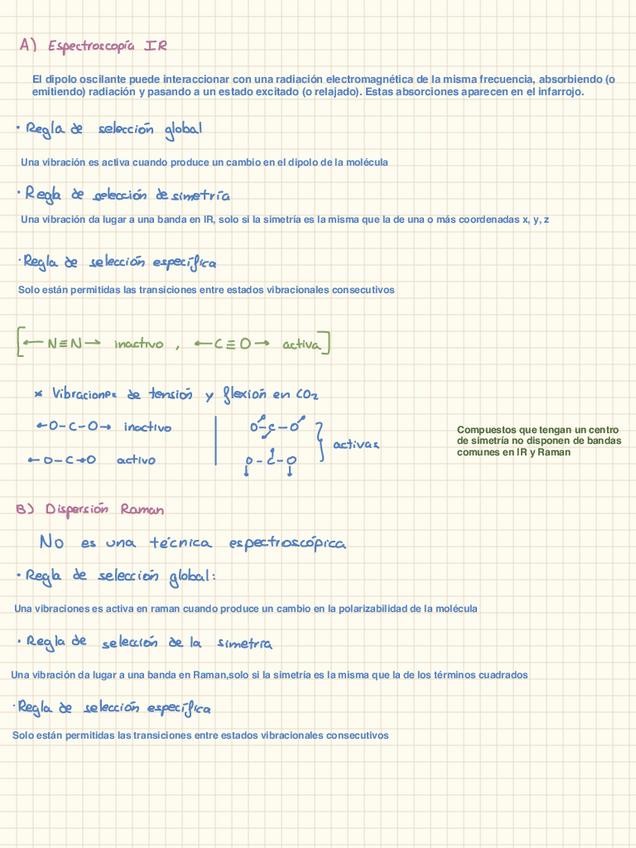 A) Espectroscopía IR
El dipolo oscilante puede interaccionar con una radiación electromagnética de la misma frecuencia, absorbiendo (o
emitiendo) radiación y pasando a un estado excitado (o relajado). Estas absorciones aparecen en el infarrojo.
· Regla de selección global
Una vibración es activa cuando produce un cambio en el dipolo de la molécula
· Regla de selección de simetría
Una vibración da lugar a una banda en IR, solo si la simetría es la misma que la de una o más coordenadas x, y, z
· Regla de selección específica
Solo están permitidas las transiciones entre estados vibracionales consecutivos
[← N≡N → inactivo , ← C≡O → activa]
* Vibraciones de tensión y flexión en CO₂
←O-C-O→ inactivo
←O-C→O activo
O-C-O
O-C-O
} activas
Compuestos que tengan un centro
de simetría no disponen de bandas
comunes en IR y Raman
B) Dispersión Raman
No es una técnica espectroscópica
· Regla de selección global:
Una vibraciones es activa en raman cuando produce un cambio en la polarizabilidad de la molécula
· Regla de selección de la simetría
Una vibración da lugar a una banda en Raman,solo si la simetría es la misma que la de los términos cuadrados
· Regla de selección específica
Solo están permitidas las transiciones entre estados vibracionales consecutivos